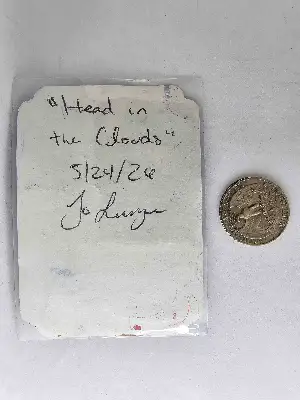 "Head in
the Clouds"
5/24/26
Jo